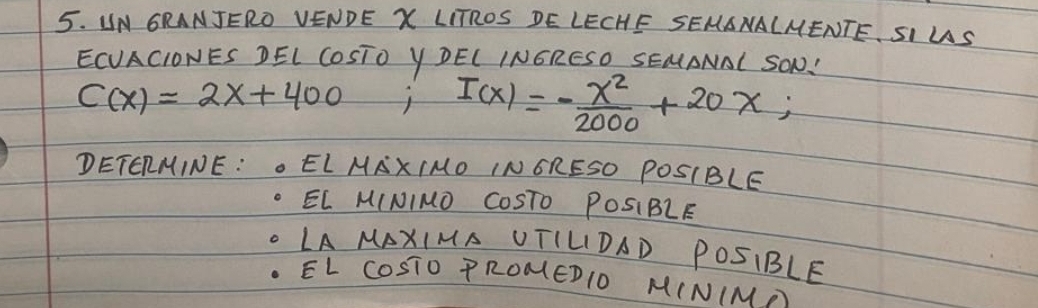 5. UN GRANJERO VENDE X LITROS DE LECHE SEMANALMENTE. SI LAS
ECUACIONES DEL COSTO Y DEL INGRESO SEMANAL SON:
C(X) = 2X + 400 ; I(X) = - X²/2000 + 20 X ;
DETERMINE: • EL MÁXIMO INGRESO POSIBLE
• EL MINIMO COSTO POSIBLE
• LA MAXIMA UTILIDAD POSIBLE
• EL COSTO PROMEDIO MINIMO